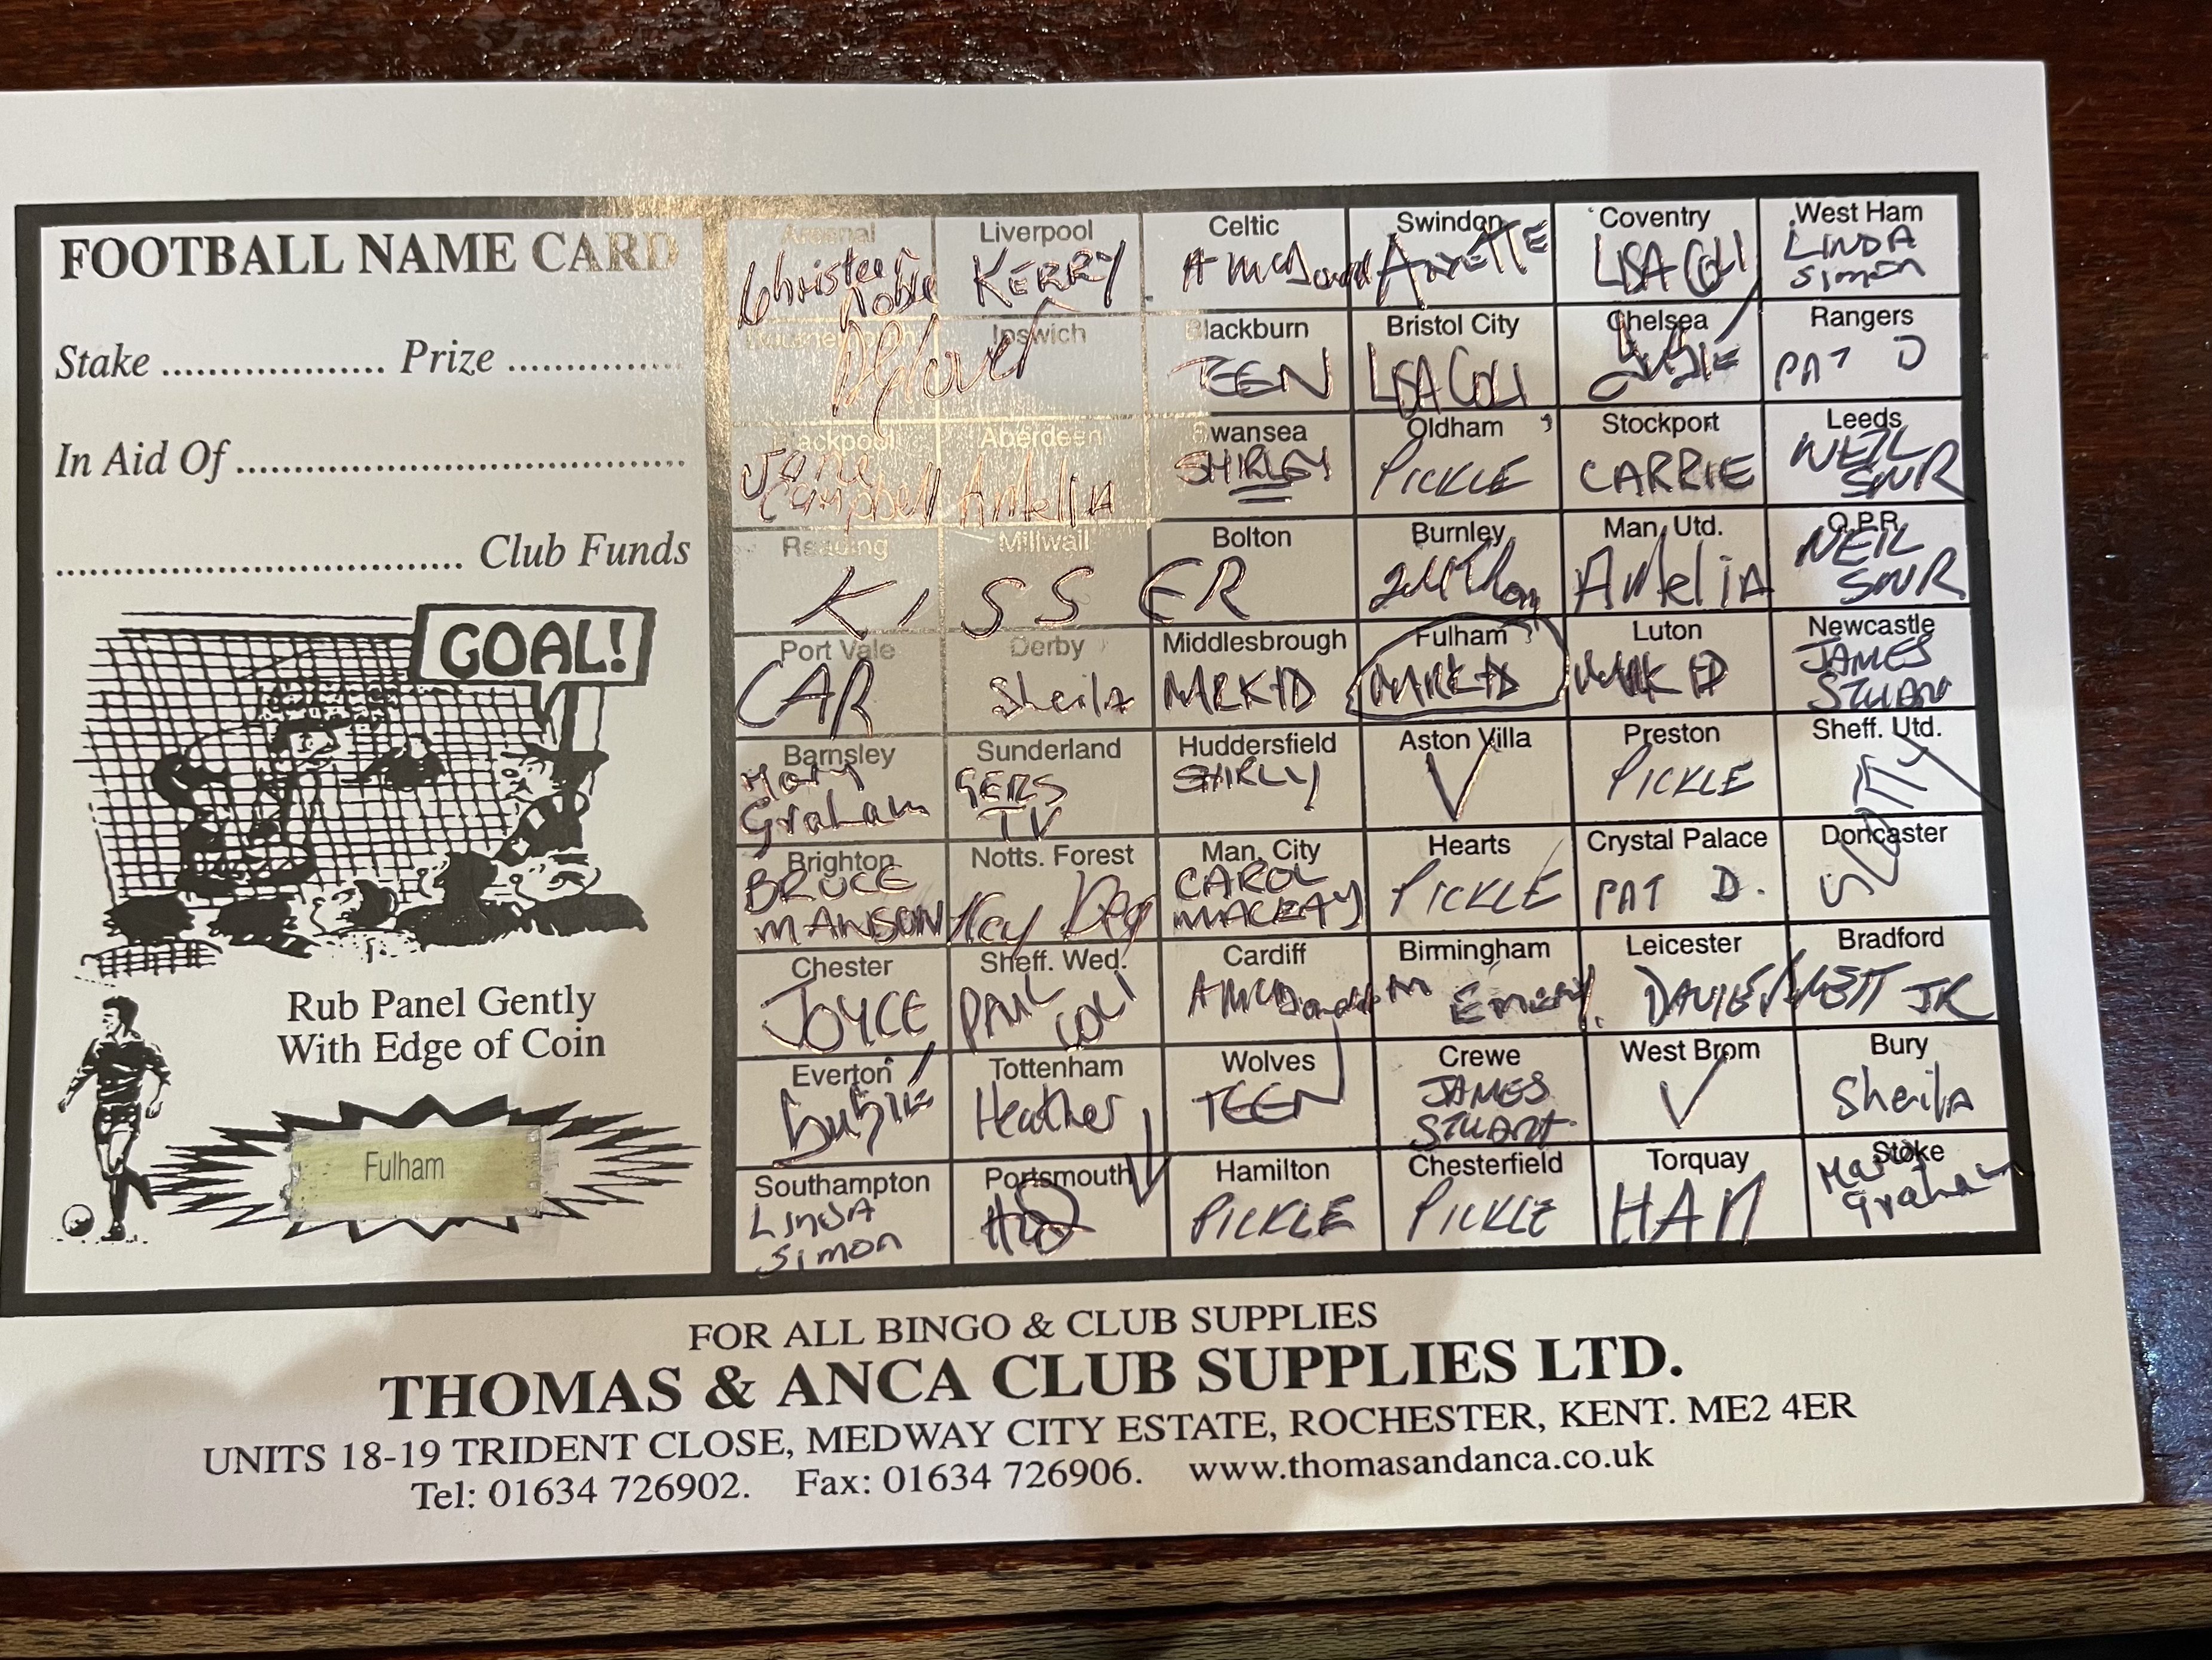 FOOTBALL NAME CARD
Stake .................... Prize ................
In Aid Of ..........................................
...................................... Club Funds
GOAL!
Rub Panel Gently
With Edge of Coin
Fulham
Arsenal Liverpool Celtic Swindon Coventry West Ham
KERRY LISA COLI LINDA
Simon
Bournemouth Ipswich Blackburn Bristol City Chelsea Rangers
TEEN LISA COLI SUSIE PAT D
Blackpool Aberdeen Swansea Oldham Stockport Leeds
Jane
Campbell Amelia SHIRLEY PICKLE CARRIE NEIL
SNR
Reading Millwall Bolton Burnley Man. Utd. Q.P.R.
KISSER Amelia NEIL
SNR
Port Vale Derby Middlesbrough Fulham Luton Newcastle
CAR Sheila MARK D MARK D JAMES
Barnsley Sunderland Huddersfield Aston Villa Preston Sheff. Utd.
Mary
Graham GERS
TV SHIRLY PICKLE
Brighton Notts. Forest Man. City Hearts Crystal Palace Doncaster
BRUCE
MANSON CAROL
MACKAY PICKLE PAT D. SCOTTY
Chester Sheff. Wed. Cardiff Birmingham Leicester Bradford
JOYCE PAUL
COLI
Everton Tottenham Wolves Crewe West Brom Bury
SUSIE Heather TEEN JAMES
STUART Sheila
Southampton Portsmouth Hamilton Chesterfield Torquay Stoke
LINDA
Simon PICKLE PICKLE HAM Mary
Graham
FOR ALL BINGO & CLUB SUPPLIES
THOMAS & ANCA CLUB SUPPLIES LTD.
UNITS 18-19 TRIDENT CLOSE, MEDWAY CITY ESTATE, ROCHESTER, KENT. ME2 4ER
Tel: 01634 726902. Fax: 01634 726906. www.thomasandanca.co.uk